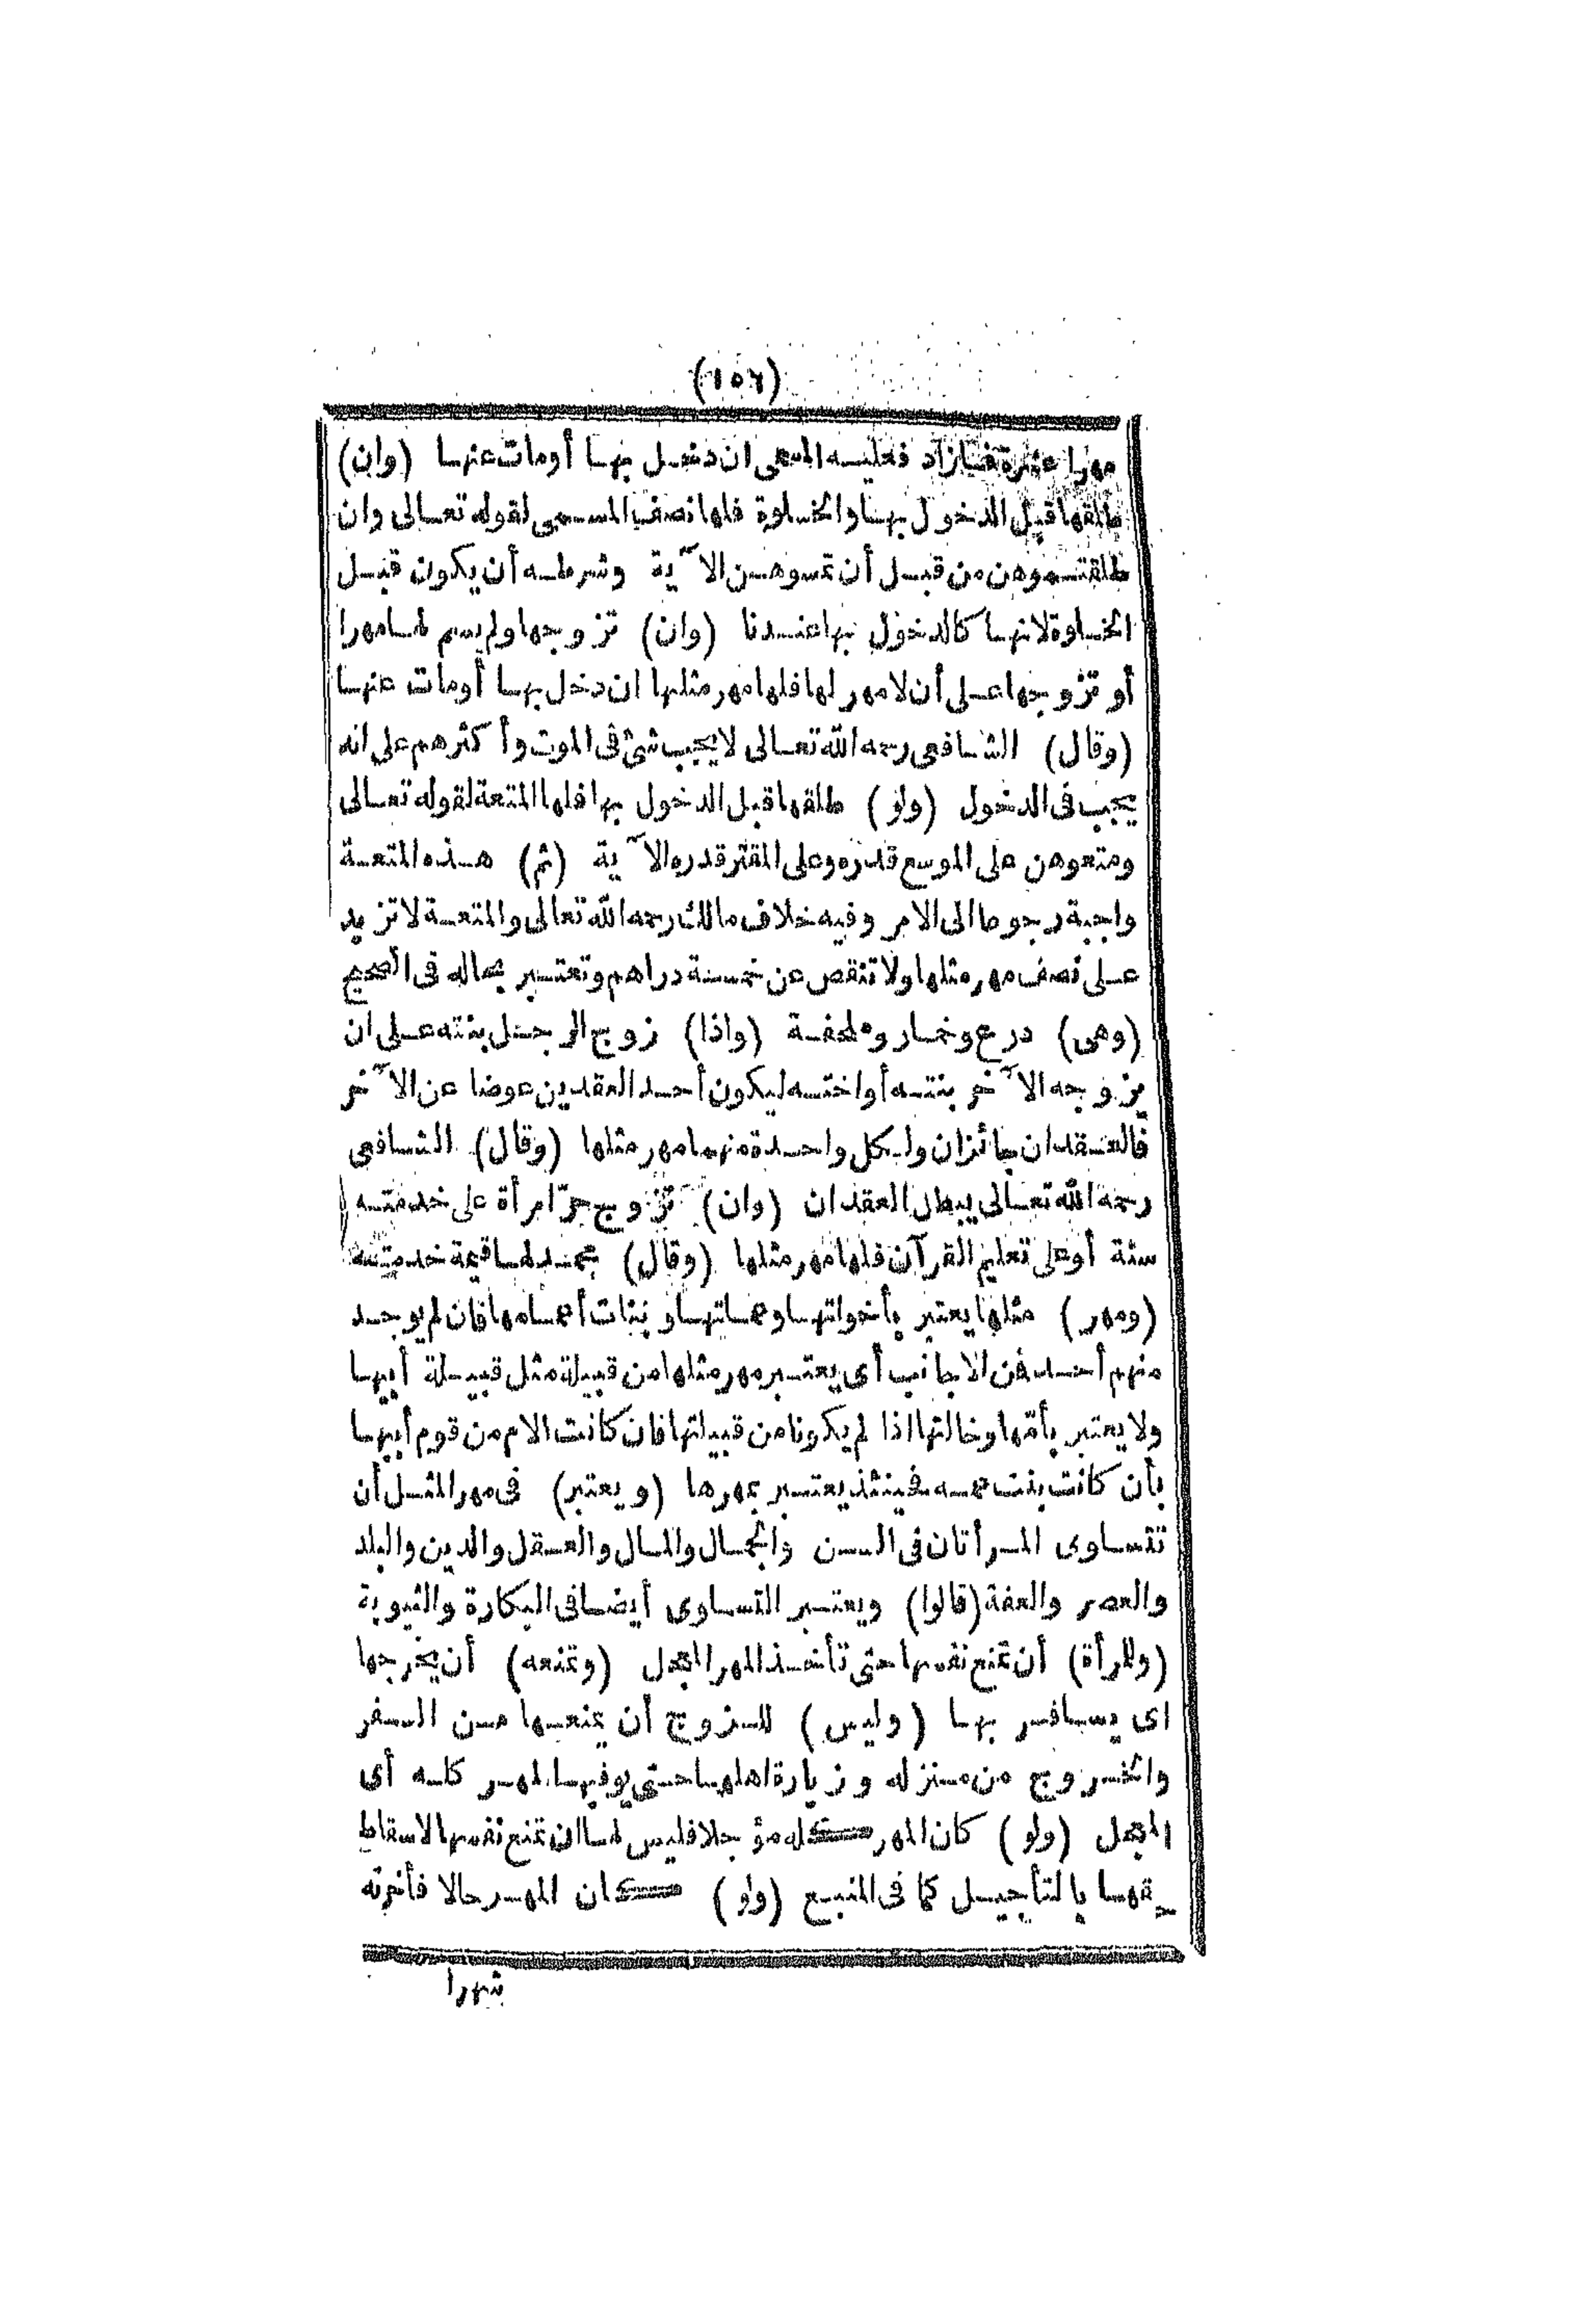 (١٥٦)
مهرا عشرة فما زاد فعليه المسمى ان دخل بها أومات عنها (وان)
طلقها قبل الدخول بها والخلوة فلها نصف المسمى لقوله تعالى وان
طلقتموهن من قبل أن تمسوهن الآية وشرطه أن يكون قبل
الخلوة لانها كالدخول بها عندنا (وان) تزوجها ولم يسم لها مهرا
أو تزوجها على أن لا مهر لها فلها مهر مثلها ان دخل بها أومات عنها
(وقال) الشافعى رحمه الله تعالى لا يجب شئ فى الموت وأكثرهم على انه
يجب فى الدخول (ولو) طلقها قبل الدخول بها فلها المتعة لقوله تعالى
ومتعوهن على الموسع قدره وعلى المقتر قدره الآية (ثم) هذه المتعة
واجبة رجوعا الى الامر وفيه خلاف مالك رحمه الله تعالى والمتعة لا تزيد
على نصف مهر مثلها ولا تنقص عن خمسة دراهم وتعتبر بحاله فى الصحيح
(وهى) درع وخمار وملحفة (واذا) زوج الرجل بنته على ان
يزوجه الآخر بنته أو اخته ليكون أحد العقدين عوضا عن الآخر
فالعقدان جائزان ولكل واحدة منهما مهر مثلها (وقال) الشافعى
رحمه الله تعالى يبطل العقدان (وان) تزوج حرّ امرأة على خدمته
سنة أو على تعليم القرآن فلها مهر مثلها (وقال) محمد لها قيمة خدمته
(ومهر) مثلها يعتبر بأخواتها وعماتها وبنات أعمامها فان لم يوجد
منهم أحد فمن الاجانب أى يعتبر مهر مثلها من قبيلة مثل قبيلة أبيها
ولا يعتبر بأمّها وخالتها اذا لم يكونا من قبيلتها فان كانت الام من قوم أبيها
بأن كانت بنت عمه فحينئذ يعتبر بمهرها (ويعتبر) فى مهر المثل أن
تتساوى المرأتان فى السن والجمال والمال والعقل والدين والبلد
والعصر والعفة (قالوا) ويعتبر التساوى أيضا فى البكارة والثيوبة
(وللمرأة) أن تمنع نفسها حتى تأخذ المهر المعجل (وتمنعه) أن يخرجها
اى يسافر بها (وليس) للزوج أن يمنعها من السفر
والخروج من منزله وزيارة اهلها حتى يوفيها المهر كله أى
المعجل (ولو) كان المهر كله مؤجلا فليس لها ان تمنع نفسها لاسقاط
حقها بالتأجيل كما فى البيع (ولو) كان المهر حالا فأخرته
شهرا